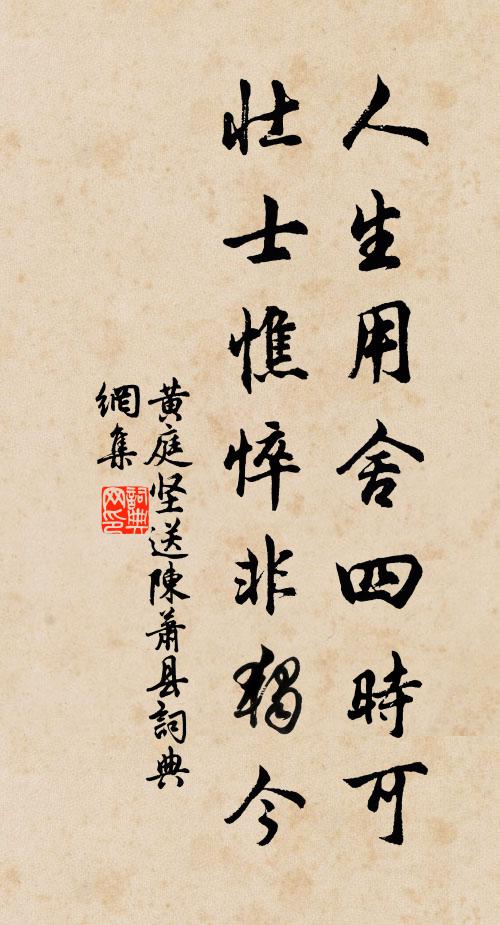 人生用舍四時可
壮士憔悴非獨今
黄庭坚送陳蕭县詞典
網集
詞典
网印